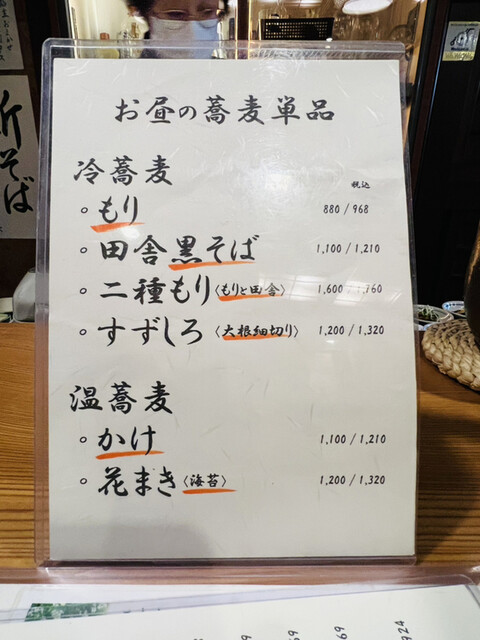 新そば
お昼の蕎麦単品
冷蕎麦
税込
○ もり 880 / 968
○ 田舎黒そば 1,100 / 1,210
○ 二種もり〈もりと田舎〉 1,600 / 1,760
○ すずしろ〈大根細切り〉 1,200 / 1,320
温蕎麦
○ かけ 1,100 / 1,210
○ 花まき〈海苔〉 1,200 / 1,320